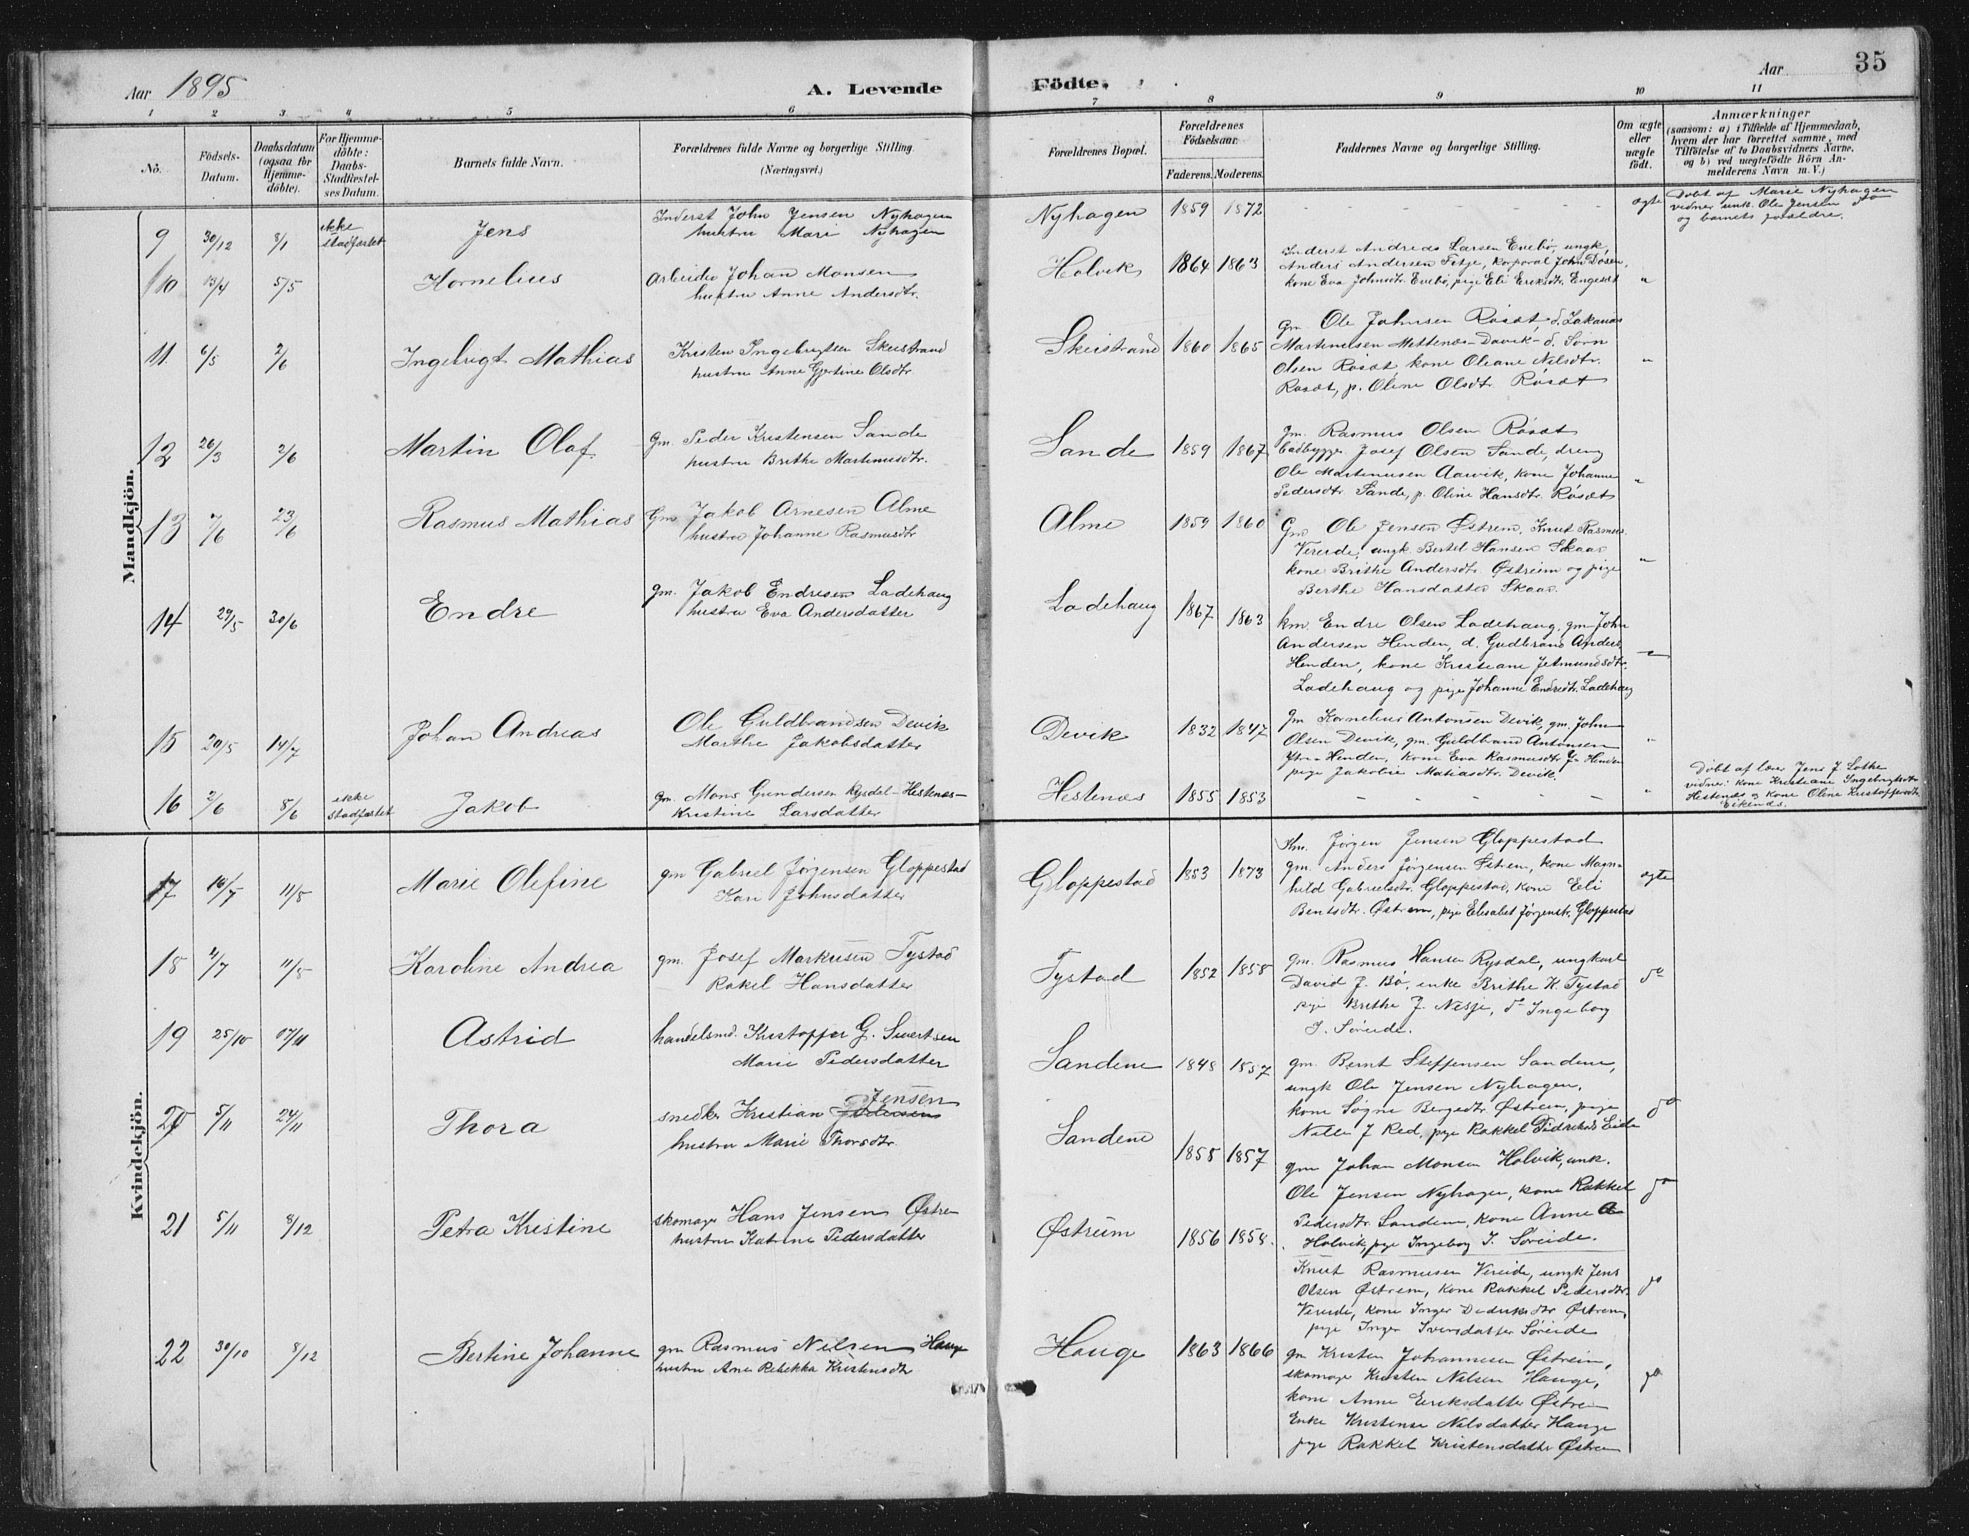 Aar 1895
A. Levende
Födte.
Aar
35
1 2 3 4 5 6 7 8 9 10 11
No.
Födsels-
Datum.
Daabsdatum
(ogsaa for
Hjemme-
döbte).
For Hjemme-
döbte:
Daabs-
Stadfæstel-
ses Datum.
Barnets fulde Navn.
Forældrenes fulde Navne og borgerlige Stilling
(Næringsvei.)
Forældrenes Bopæl.
Forældrenes
Födselsaar.
Faderens. Moderens.
Faddernes Navne og borgerlige Stilling.
Om ægte
eller
uægte
födt.
Anmærkninger
(saasom: a) i Tilfælde af Hjemmedaab,
hvem der har forrettet samme, med
Tilföielse af to Daabsvidners Navne,
og b) ved uægtefödte Börn An-
melderens Navn m. V.)
Mandkjön.
9 30/12 8/1 ikke stadfæstet Jens
Inderst John Jensen Nyhagen
hustru Mari Nyhagen
Nyhagen 1859 1872 ægte
Døbt af Marie Nyhagen
vidner unk. Ole Jensen do
og barnets forældre.
10 13/4 5/5 Kornelius
Arbeider Johan Monsen
hustru Anne Andersdtr.
Holvik 1864 1863
Inderst Andreas Larsen Evebø, ungk,
Anders Andersen Fitje, Korporal John Døsen,
kone Eva Johnsdtr Evebø, pige Eli Eriksdtr. Engeset "
11 6/5 2/6 Ingebrigt Mathias
Kristen Ingebrigtsen Skeistrand
hustru Anne Gjertine Olsdtr.
Skeistrand 1860 1865
gm Ole Johnsen Røsæt, d. Zakarias
Martinusen Mettenæs-Davik- d. Sørn
Olsen Røsæt, kone Oleane Nilsdtr.
Røsæt, p. Oline Olsdtr. Røsæt "
12 26/3 2/6 Martin Olaf.
gm. Peder Kristensen Sande
hustru Brithe Martinusdtr.
Sande 1859 1867
gm. Rasmus Olsen Røsæt
baadbygger Josef Olsen Sande, dreng
Ole Martinusen Aarvik, kone Johanne
Pedersdtr Sande, p. Oline Hansdtr. Røsæt "
13 7/6 23/6 Rasmus Mathias
Gm Jakob Arnesen Alme
hustru Johanne Rasmusdtr
Alme 1859 1860
Gm Ole Jensen Østrem, Knut Rasmus.
Vereide, ungk. Bertel Hansen Skaar
kone Brithe Andersdtr. Østreim og pige
Berthe Hansdatter Skaar. "
14 29/5 30/6 Endre
gm. Jakob Endresen Ladehaug
hustru Eva Andersdatter
Ladehaug 1867 1863
km Endre Olsen Ladehaug, gm John
Andersen Henden, d. Gudbrand Anders
Henden, kone Kristiane Jetmundsdtr.
Ladehaug og pige Johanne Endredtr. Ladehaug
15 20/5 14/7 Johan Andreas
Ole Guldbrandsen Devik
Marthe Jakobsdatter
Devik 1832 1847
gm Kornelius Antonsen Devik, gm. John
Olsen Devik, gm. Guldbrand Antonsen
Ytre-Henden, kone Eva Rasmusdtr Y. Henden
pige Jakobie Matiasdtr. Devik "
16 2/6 8/6 ikke stadfæstet Jakob
gm. Mons Gundersen Rysdel-Hestenæs-
Kristine Larsdatter
Hestenæs 1855 1853 "
Døbt af lærer Jens J Lothe
vidner: kone Kristiane Ingebrigtsdtr
Hestenæs og kone Oline Kristoffersdtr.
Eikenæs.
Kvindekjön.
17 16/7 11/8 Marie Olefine
gm Gabriel Jørgensen Gloppestad
Kari Johnsdatter
Gloppestad 1853 1873
Km. Jørgen Jensen Gloppestad
gm. Anders Jørgensen Østrem, kone Magn-
hild Gabrielsdtr. Gloppestad, kone Eli
Bentsdtr. Østrem, pige Elisabet Jørgensdtr. Gloppestad ægte
18 4/7 11/8 Karoline Andrea
gm. Josef Markusen Tystad
Rakel Hansdatter
Tystad 1852 1858
gm. Rasmus Hansen Rysdal, ungkarl
David J. Bø, enke Brithe H. Tystad
pige Brithe J. Nesje, do Ingeborg
J. Søreide. do
19 25/10 07/11 Astrid
handelsmd. Kristoffer G. Sivertsen
Marie Pedersdatter
Sandene 1848 1857
gm. Bernt Steffensen Sandene,
ungk Ole Jensen Nyhagen,
kone Søgne Bergedtr Østrem, pige
Nille J Red, pige Rakkel Didriksd. Eide do
20 5/11 24/11 Thora
snedker Kristian Jensen
hustru Marie Thorsdtr.
Sandene 1855 1857
gm Johan Monsen Holvik, unk.
Ole Jensen Nyhagen, kone Rakkel
Pedersdtr. Sandene, kone Anne A
Holvik, pige Ingeborg J. Søreide. do
21 5/11 8/12 Petra Kristine
skomager Hans Jensen Østre
hustru Katrine Pedersdatter
Østreim 1856 1858.
Knut Rasmusen Vereide, ungk Jens
Olsen Østrem, kone Rakkel Pedersdtr.
Vereide, kone Inger Didriksdtr Østrem,
pige Inger Iversdatter Søreide do
22 30/10 8/12 Bertine Johanne
gm Rasmus Nilsen Hauge
hustru Ane Rebekka Kristensdtr
Hauge 1863 1866
gm Kristen Johannesen Østreim,
skomager Kristen Nilsen Hauge,
kone Anne Eriksdatter Østre
Enke Kristense Nilsdatter Hauge
pige Rakkel Kristensdatter Østre do